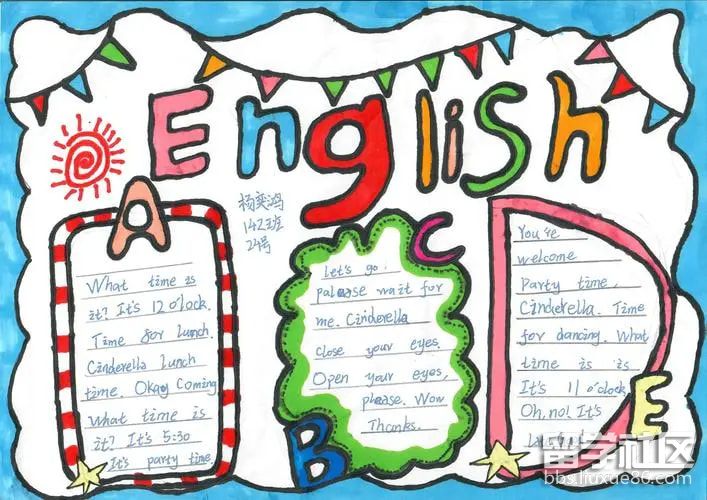 English
杨奕鸿
142班
24号
A
What time is
it? It's 12 o'clock.
Time for lunch.
Cinderella lunch
time. Okay Coming
What time is
it? It's 5:30
It's party time
C
Let's go.
palease wait for
me. Cinderella
close your eyes.
Open your eyes,
please. Wow
Thanks.
B
D
You're
welcome
Party time,
Cinderella. Time
for dancing. What
time is is
It's 11 o'clock
Oh, no! It's
E
留学社区
bbs.liuxue86.com